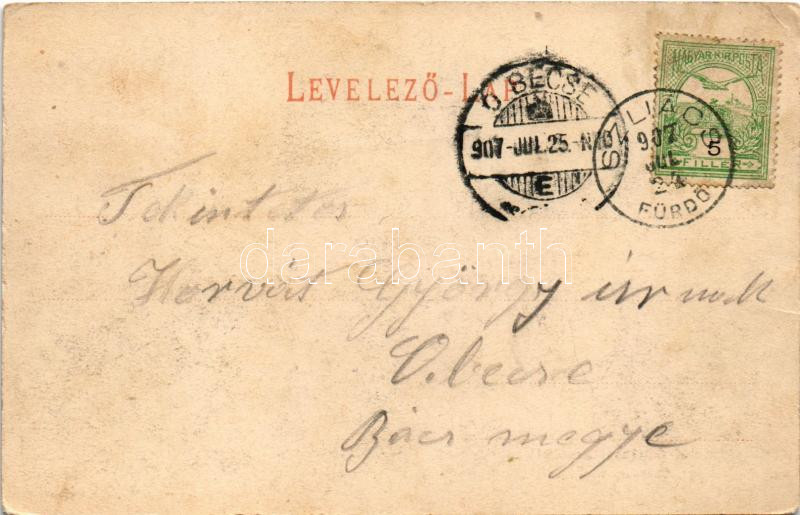 LEVELEZŐ-LAP
Ó BECSE
907-JUL.25.-N
E
MAGYAR KIR. POSTA
5
FILLÉR
SZLIÁCS
907
JUL
24
FÜRDŐ
Tekintetes
Horvát György úrnak
darabanth
O.becse
Bács megye